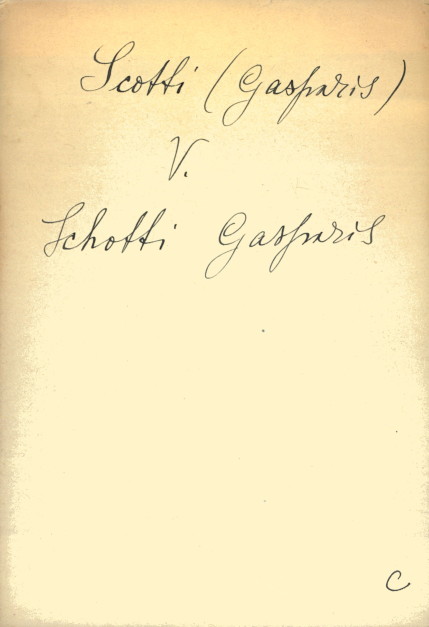 Scotti (Gasparis)
V.
Schotti Gasparis
C